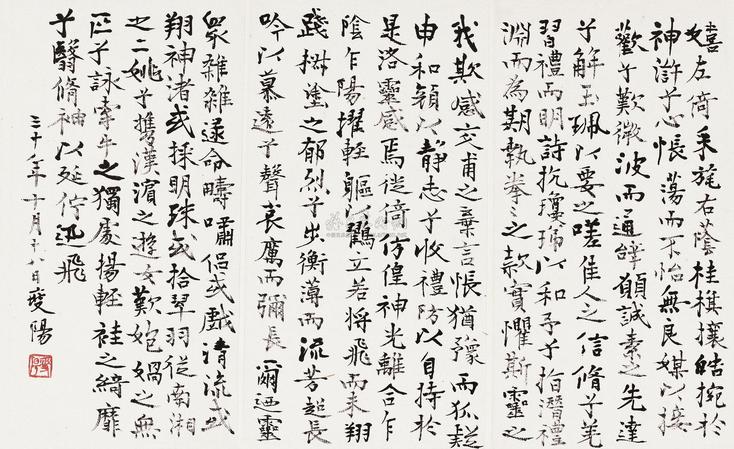 嬉左倚采旄右蔭桂棋攘皓捥於
神滸兮心悵蕩而不怡無良媒以接
歡兮歎微波而通辭願誠素之先達
兮解玉珮以要之嗟佳人之信脩兮羌
習禮而明詩抗瓊珶以和予兮指潛禮
淵而為期執拳々之款實懼斯靈之
我欺感交甫之棄言悵猶豫而狐疑
申和顏以靜志兮收禮防以自持於
是洛靈感焉從倚彷徨神光離合乍
陰乍陽擢輕軀以鶴立若將飛而未翔
踐椒塗之郁烈兮出衡薄而流芳超長
吟以慕遠兮聲哀厲而彌長爾迺靈
眾雜雜遝命疇嘯侶或戲清流或
翔神渚或採明珠或拾翠羽從南湘
之二姚兮攜漢濱之遊女歎匏媧之無
匹兮詠牽牛之獨處揚輕袿之綺靡
兮翳脩袖以延佇迅飛
年十月十八日